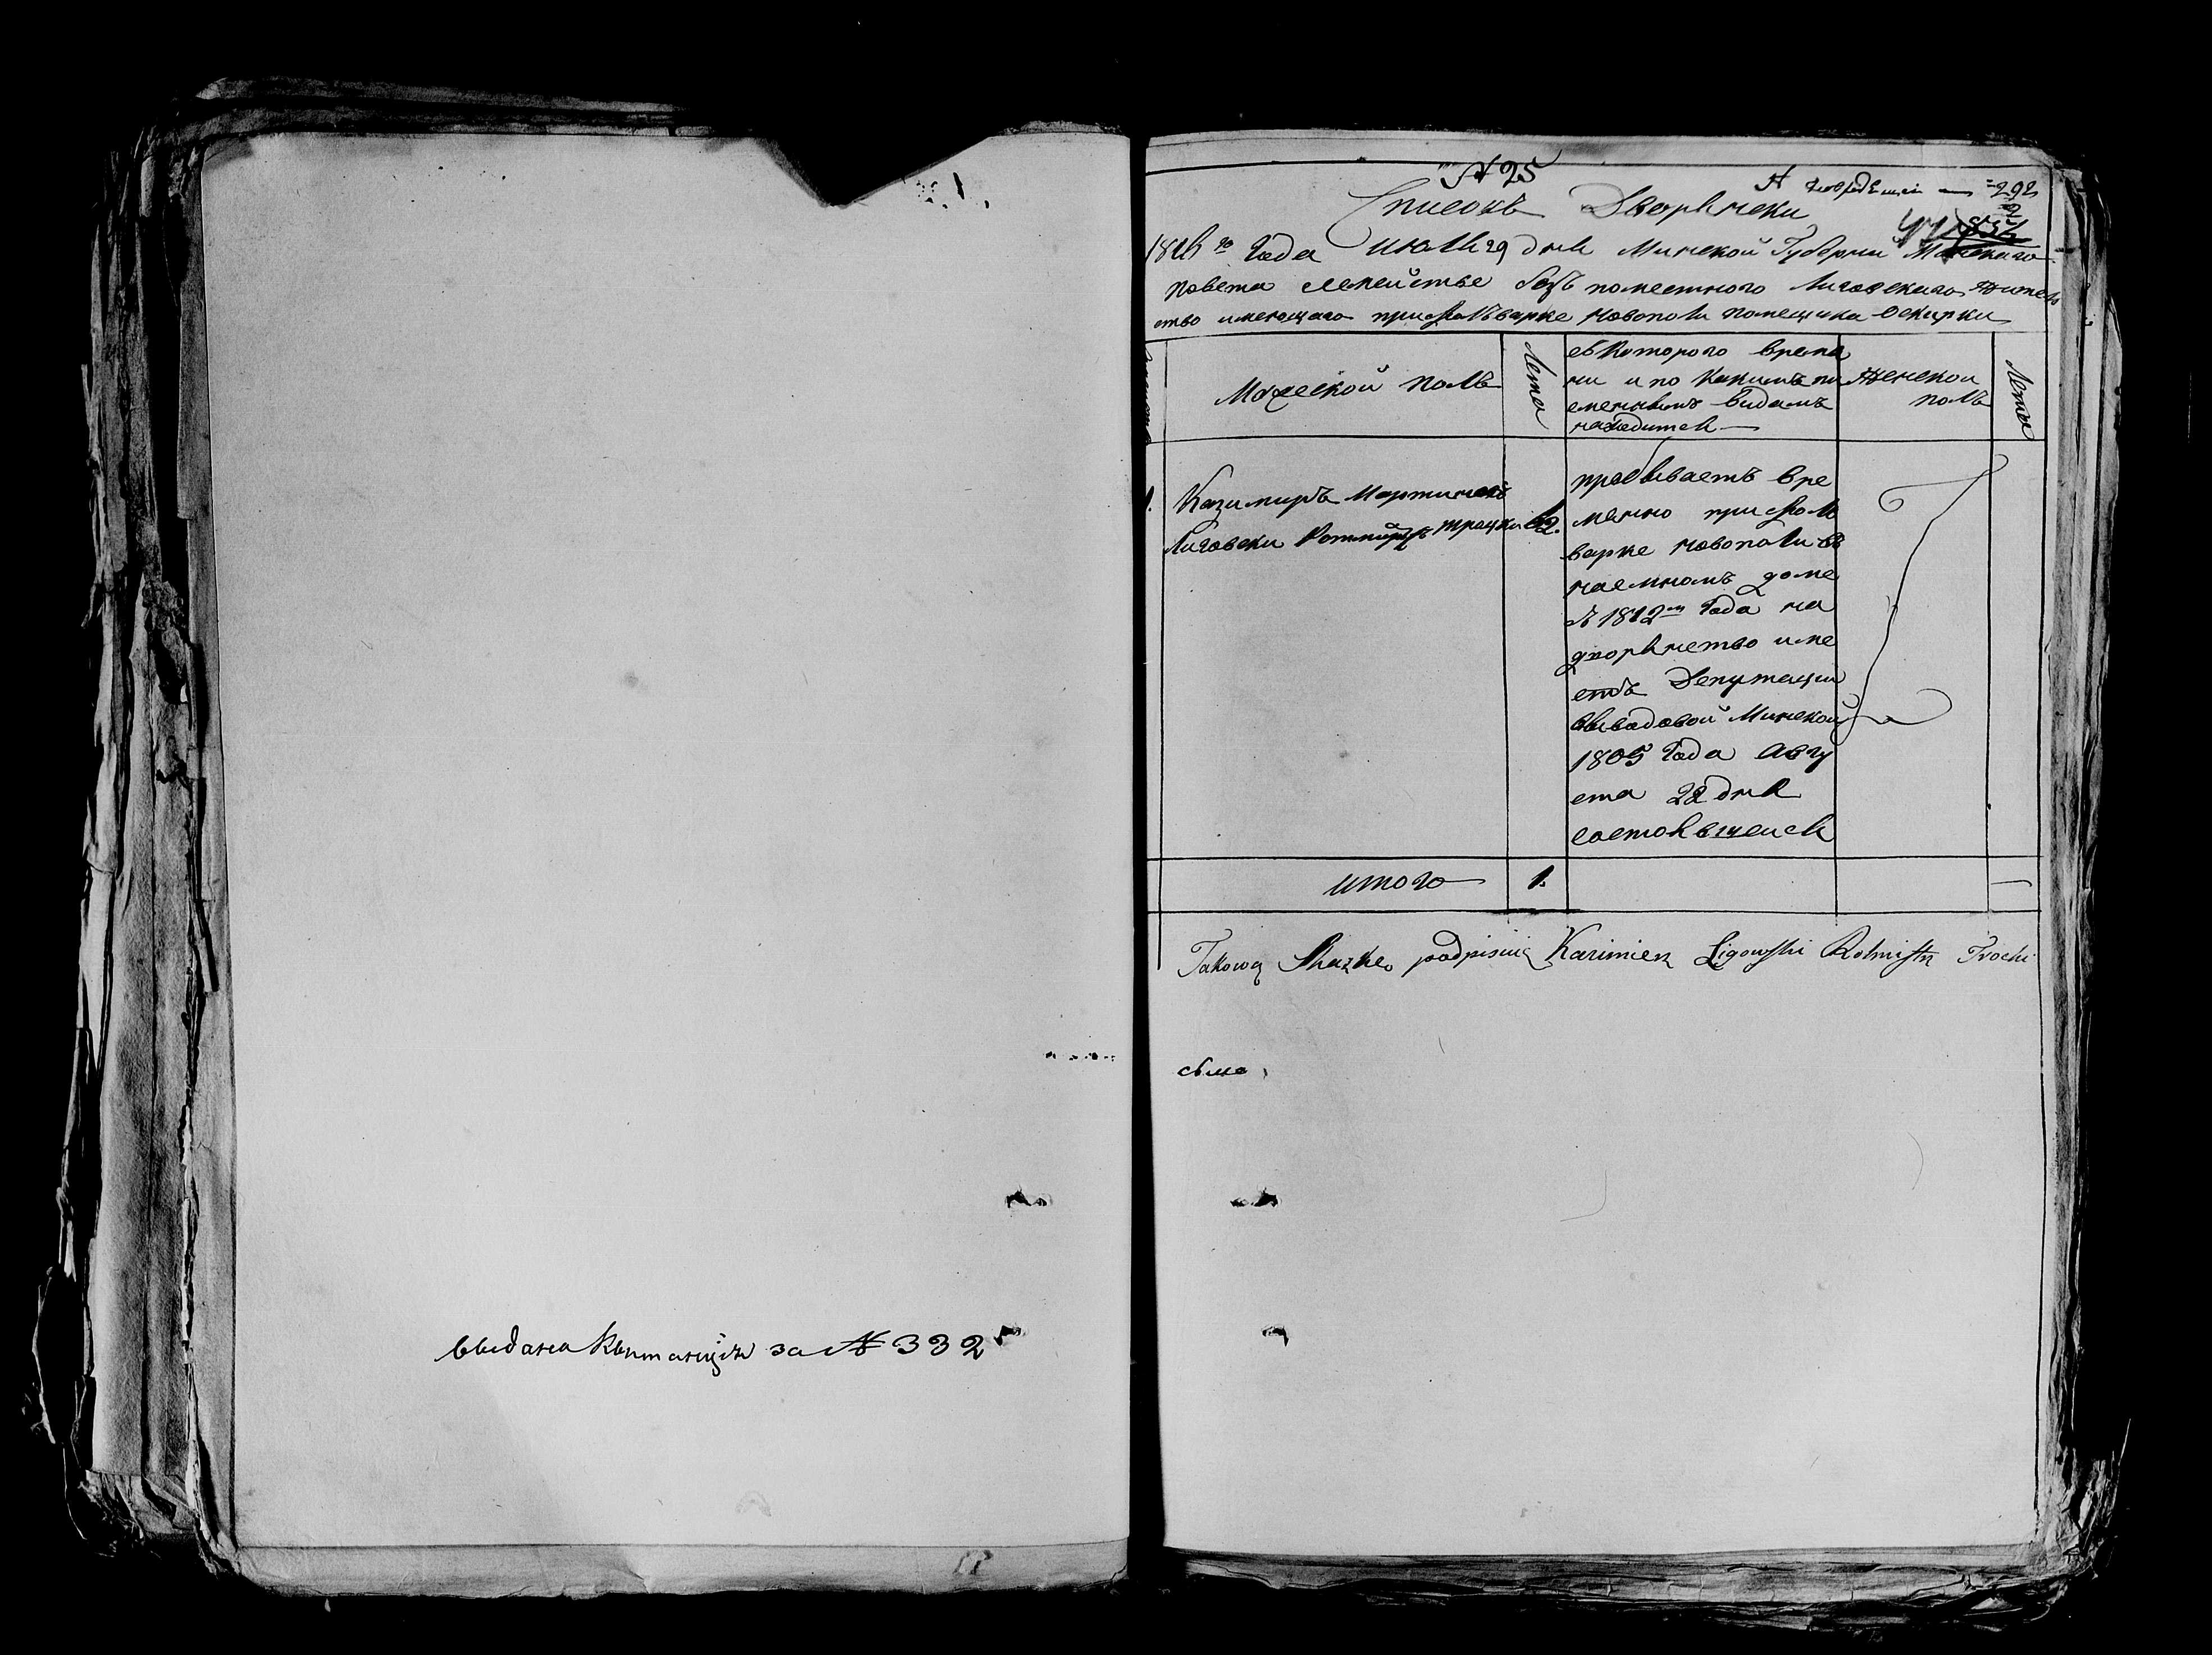 выдана Квитанция за № 332
№ 25
292
Список Дворянски
1816 го Года июля 29 дня Минской Губерни
повета Семействе безъ поместного Лиговскаго жител
ство имеющаго при фольварке Новополи помещика Оскирки
Мужеской полъ
Лета
съ Которого Време
ни и по Какимъ пи
сменнымъ видамъ
находится
Женской
полъ
Лета
1. Казимиръ Мартиновъ
Лиговски Ротмистръ троцки 62.
пребываетъ вре
менно при фоль
варке Новополи въ
наемномъ доме
съ 1812 Года на
дворянство име
етъ Депутации
Вывадовой Минской
1805 Года Авгу
ста 22 дня
состоявшейся
итого 1.
Takową Skazkę podpisuię Kazimierz Ligowski Rotmistrz Trocki